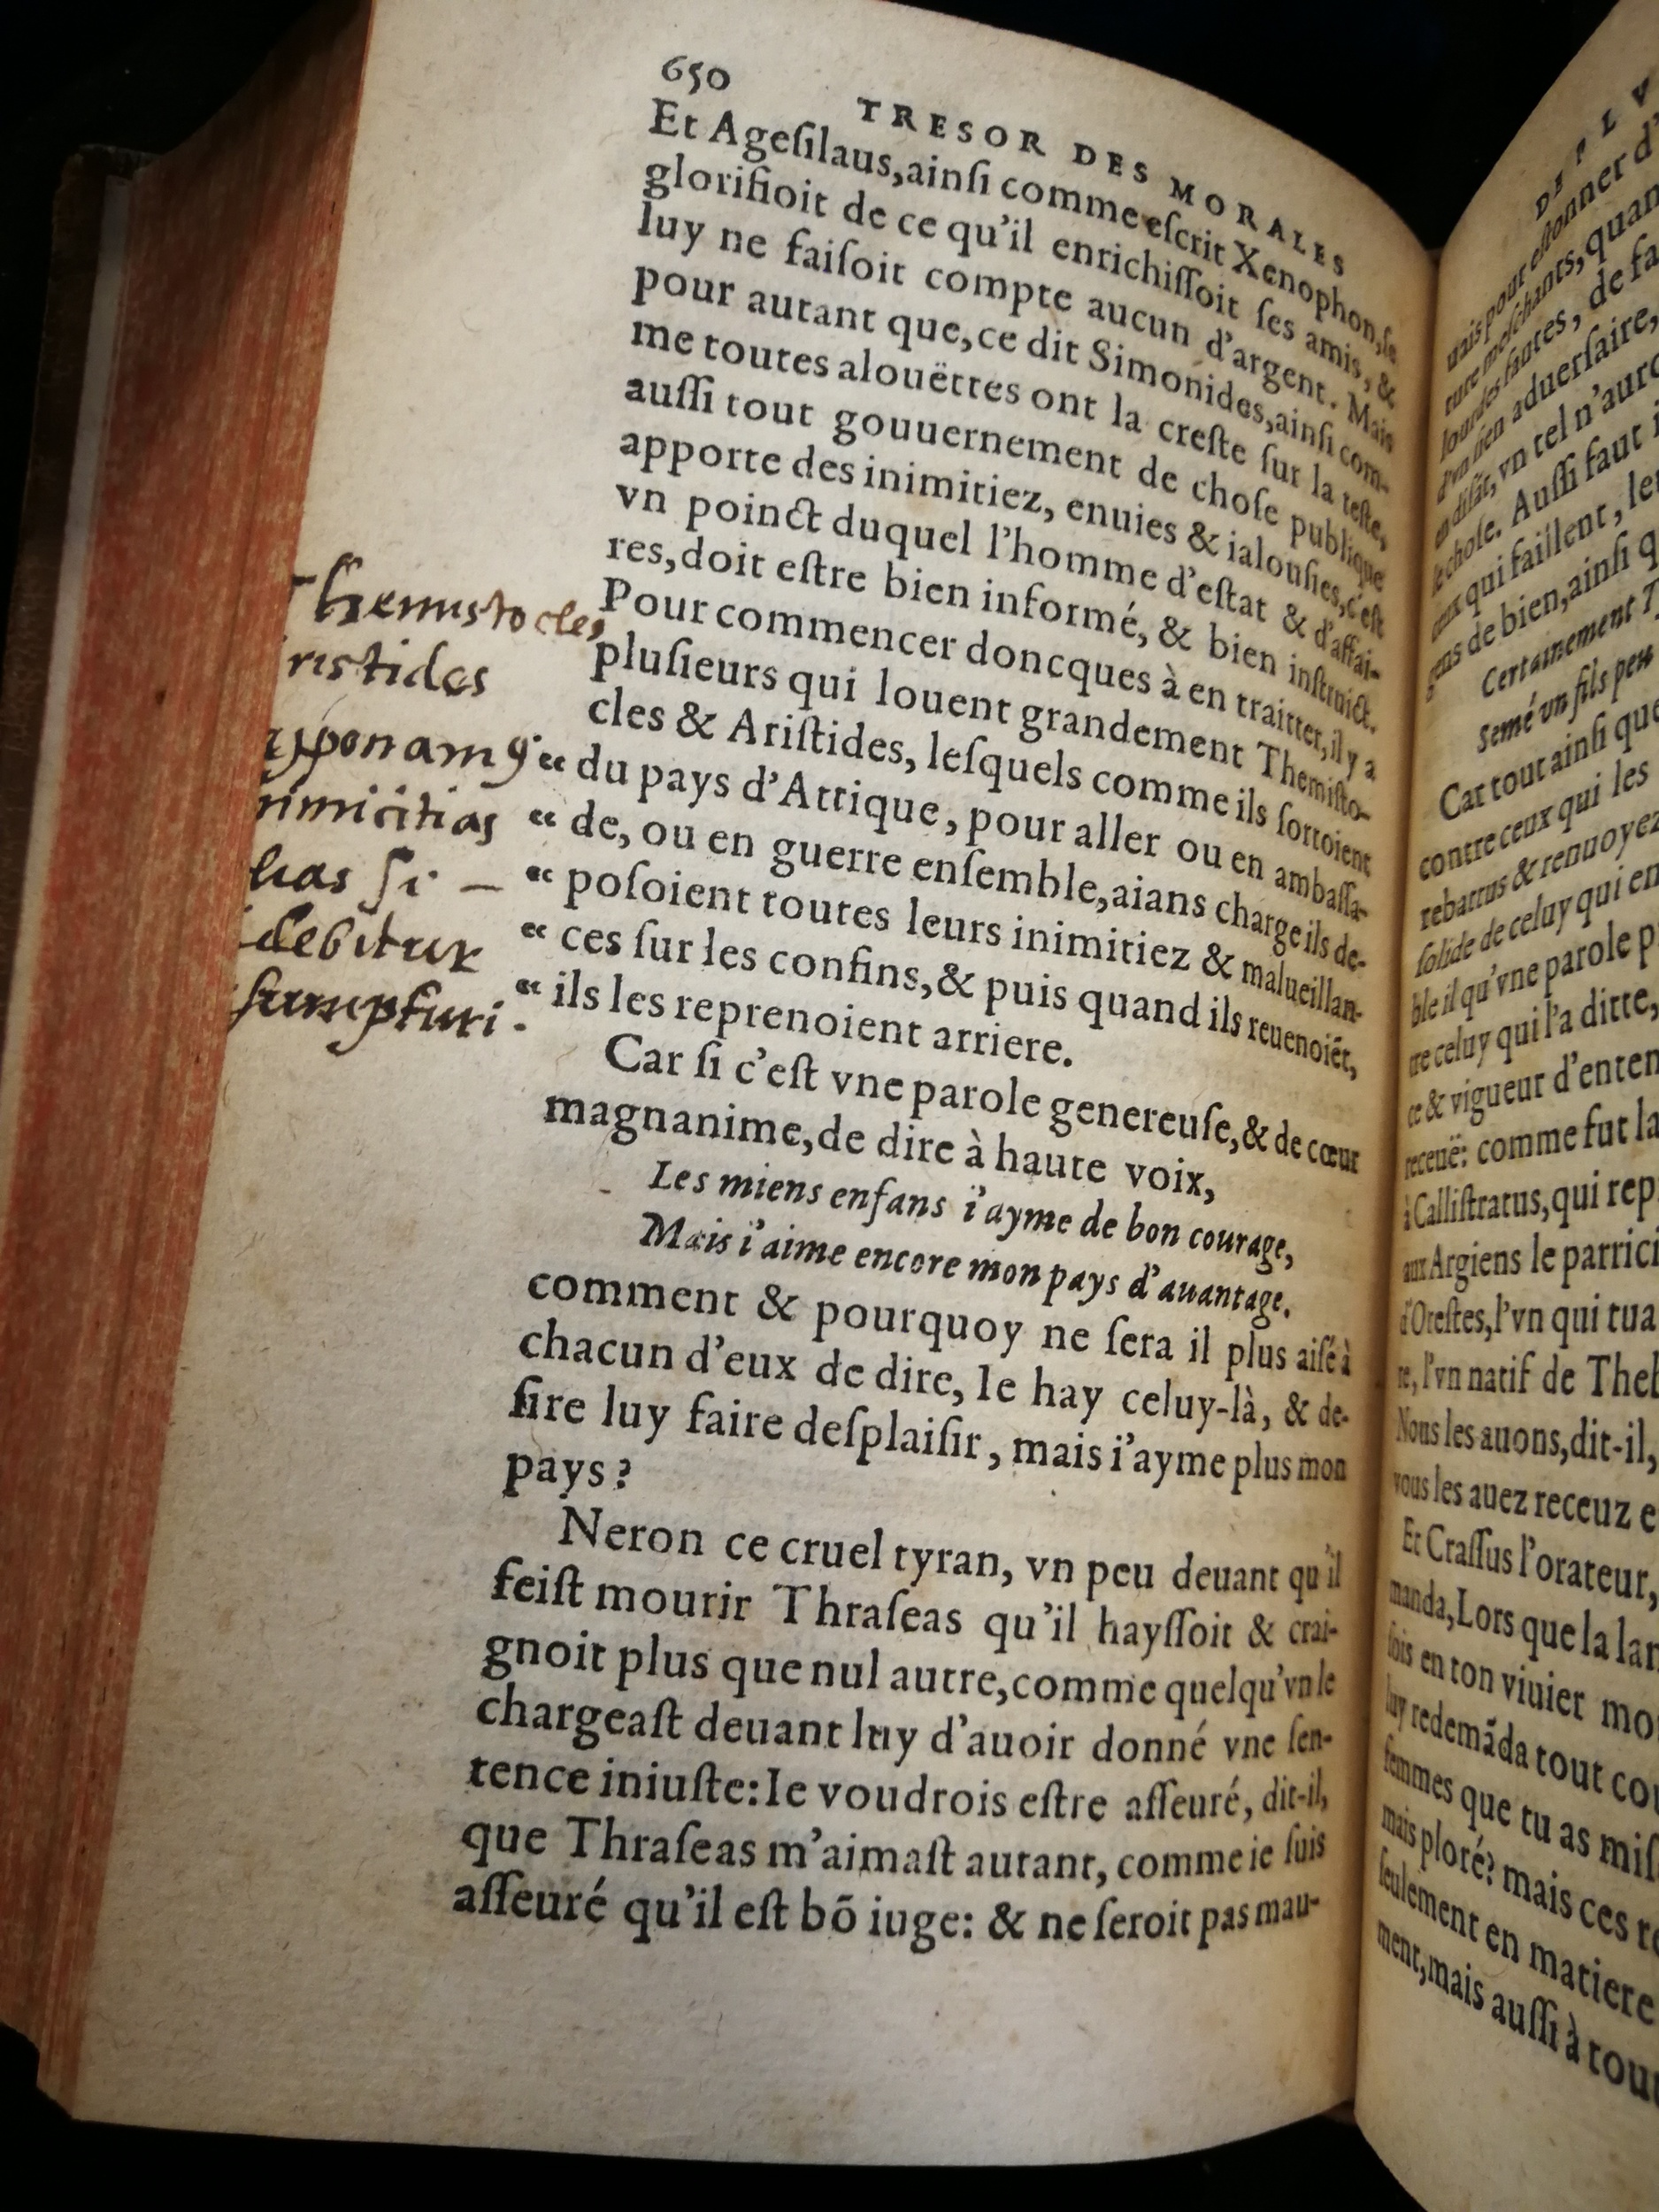 650 TRESOR DES MORALES
Et Ageſilaus,ainſi comme eſcrit Xenophon,ſe
glorifioit de ce qu'il enrichiſſoit ſes amis, &
luy ne faiſoit compte aucun d'argent. Mais
pour autant que,ce dit Simonides,ainſi com-
me toutes alouëttes ont la creſte ſur la teſte,
auſſi tout gouuernement de choſe publique
apporte des inimitiez, enuies & ialouſies,c'eſt
vn poinct duquel l'homme d'eſtat & d'affai-
res,doit eſtre bien informé, & bien inſtruict.
Pour commencer doncques à en traitter,il y a
pluſieurs qui louent grandement Themiſto-
cles & Ariſtides, leſquels comme ils ſortoient
“ du pays d'Attique, pour aller ou en ambaſſa-
“ de, ou en guerre enſemble,aians charge ils de-
“ poſoient toutes leurs inimitiez & malueillan-
“ ces ſur les confins,& puis quand ils reuenoiēt,
“ ils les reprenoient arriere.
Car ſi c'eſt vne parole genereuſe,& de cœur
magnanime,de dire à haute voix,
Les miens enfans i'ayme de bon courage,
Mais i'aime encore mon pays d'auantage.
comment & pourquoy ne ſera il plus aiſé à
chacun d'eux de dire, Ie hay celuy-là, & de-
ſire luy faire deſplaiſir, mais i'ayme plus mon
pays?
Neron ce cruel tyran, vn peu deuant qu'il
feiſt mourir Thraſeas qu'il hayſſoit & crai-
gnoit plus que nul autre,comme quelqu'vn le
chargeaſt deuant luy d'auoir donné vne ſen-
tence iniuſte:Ie voudrois eſtre aſſeuré, dit-il,
que Thraſeas m'aimaſt autant, comme ie ſuis
aſſeuré qu'il eſt bō iuge: & ne ſeroit pas mau-
Themistocles
ristides
ponamꝯ
nimicitias
has si –
debitur
sumpturi.
DE PLV
uais pour eſtonner d'
ture meſchants,quan
lourdes fautes, de fa
d'vn ſien aduerſaire,
en diſāt, vn tel n'auro
le choſe. Auſſi faut i
ceux qui faillent, le
gens de bien,ainſi q
Certainement T
Semé vn fils peu
Car tout ainſi que
contre ceux qui les
rebattus & renuoyez
ſolide de celuy qui en
ble il qu'vne parole p
tre celuy qui l'a ditte,
ce & vigueur d'enten
receuë: comme fut la
à Calliſtratus,qui rep
aux Argiens le parrici
d'Oreſtes,l'vn qui tua
re, l'vn natif de Theb
Nous les auons,dit-il,
vous les auez receuz e
Et Craſſus l'orateur,
manda,Lors que la lam
fois en ton viuier mo
luy redemāda tout co
femmes que tu as miſ
mais ploré? mais ces r
ſeulement en matiere
ment,mais auſſi à tou